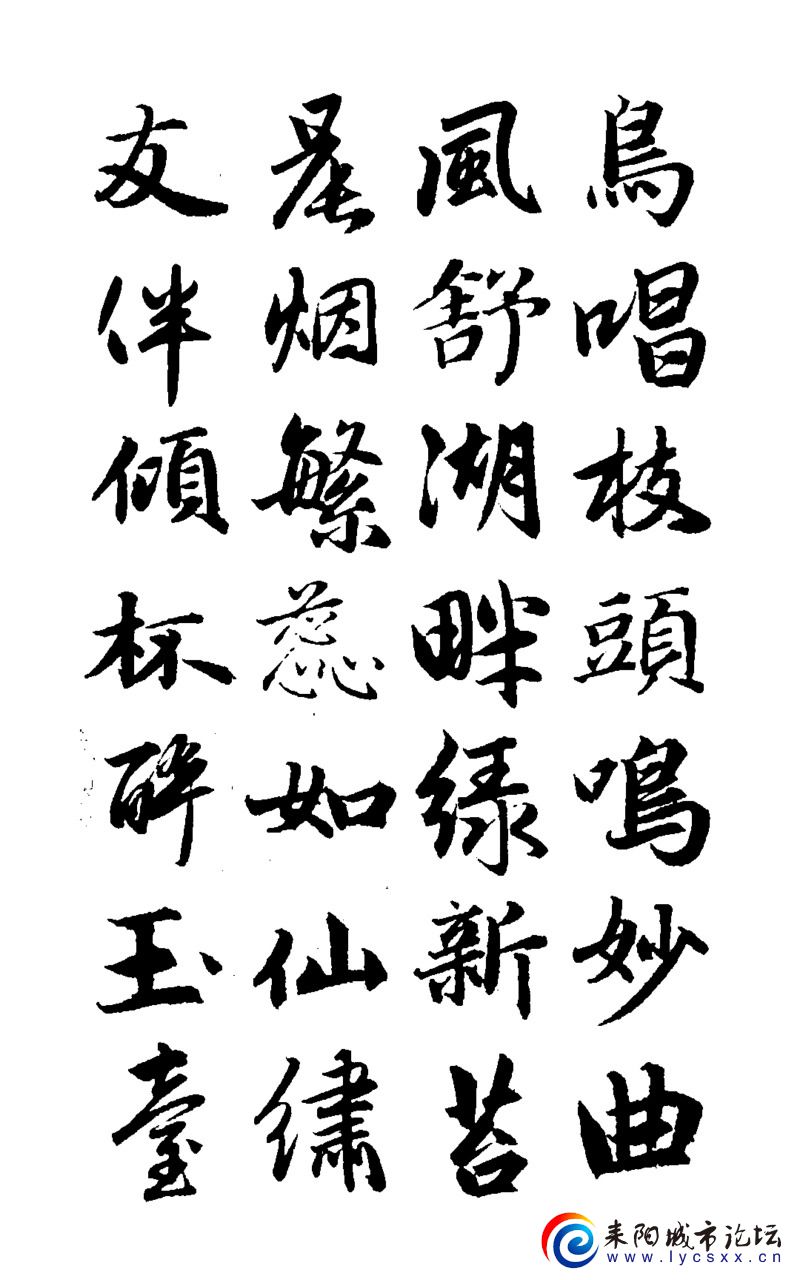 鳥唱枝頭鳴妙曲
風舒湖畔緑新苔
晨烟繁蕊如仙繡
友伴傾杯醉玉臺
耒阳城市论坛
www.lycsxx.cn